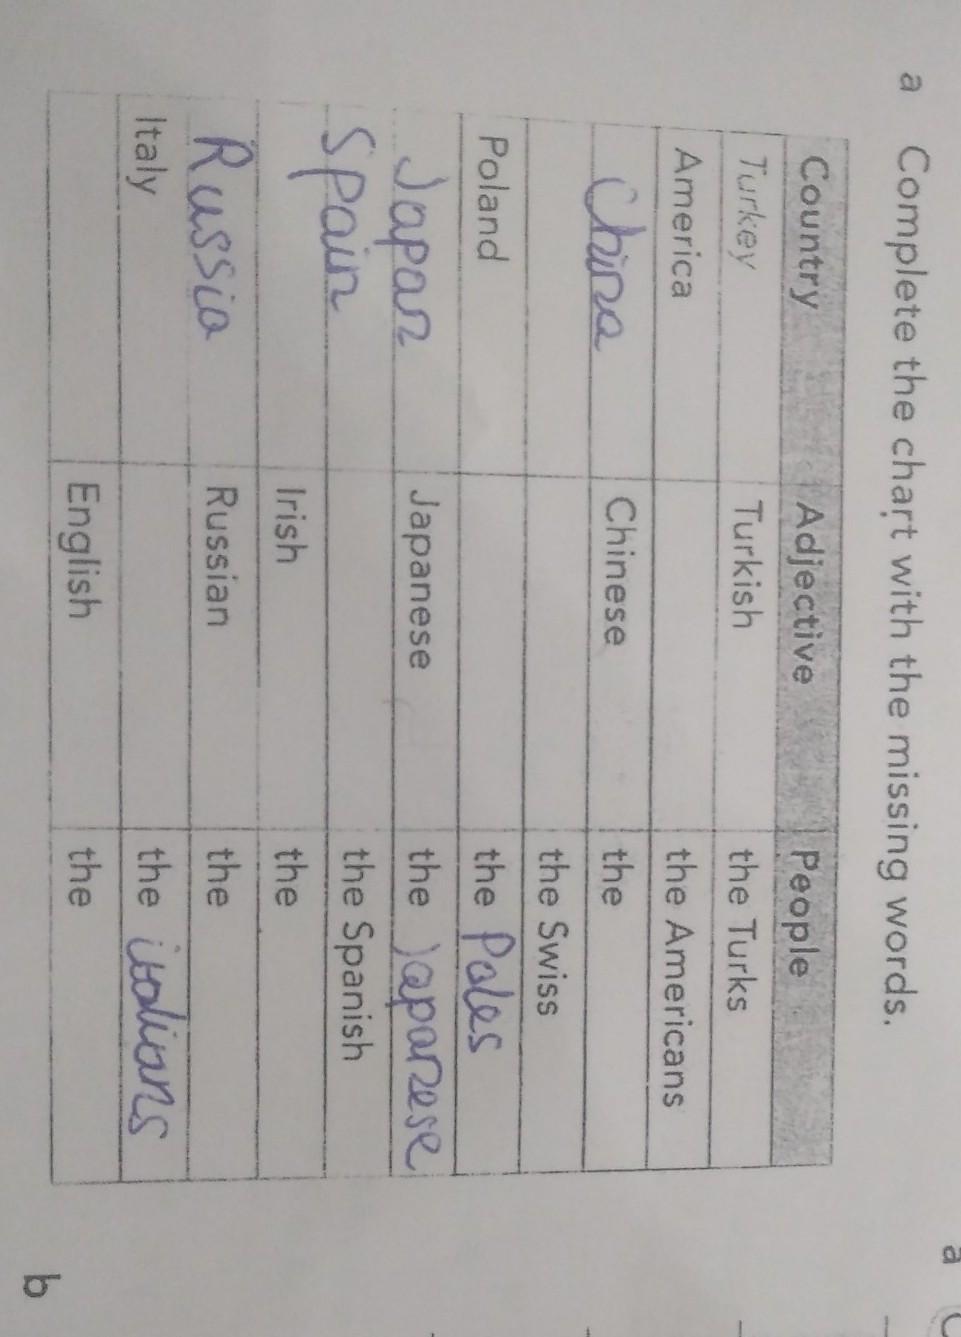 a Complete the chart with the missing words.
Country Adjective People
Turkey Turkish the Turks
America the Americans
China Chinese the
the Swiss
Poland the Poles
Japan Japanese the japanese
Spain the Spanish
Irish the
Russia Russian the
Italy the italians
English the
b
a